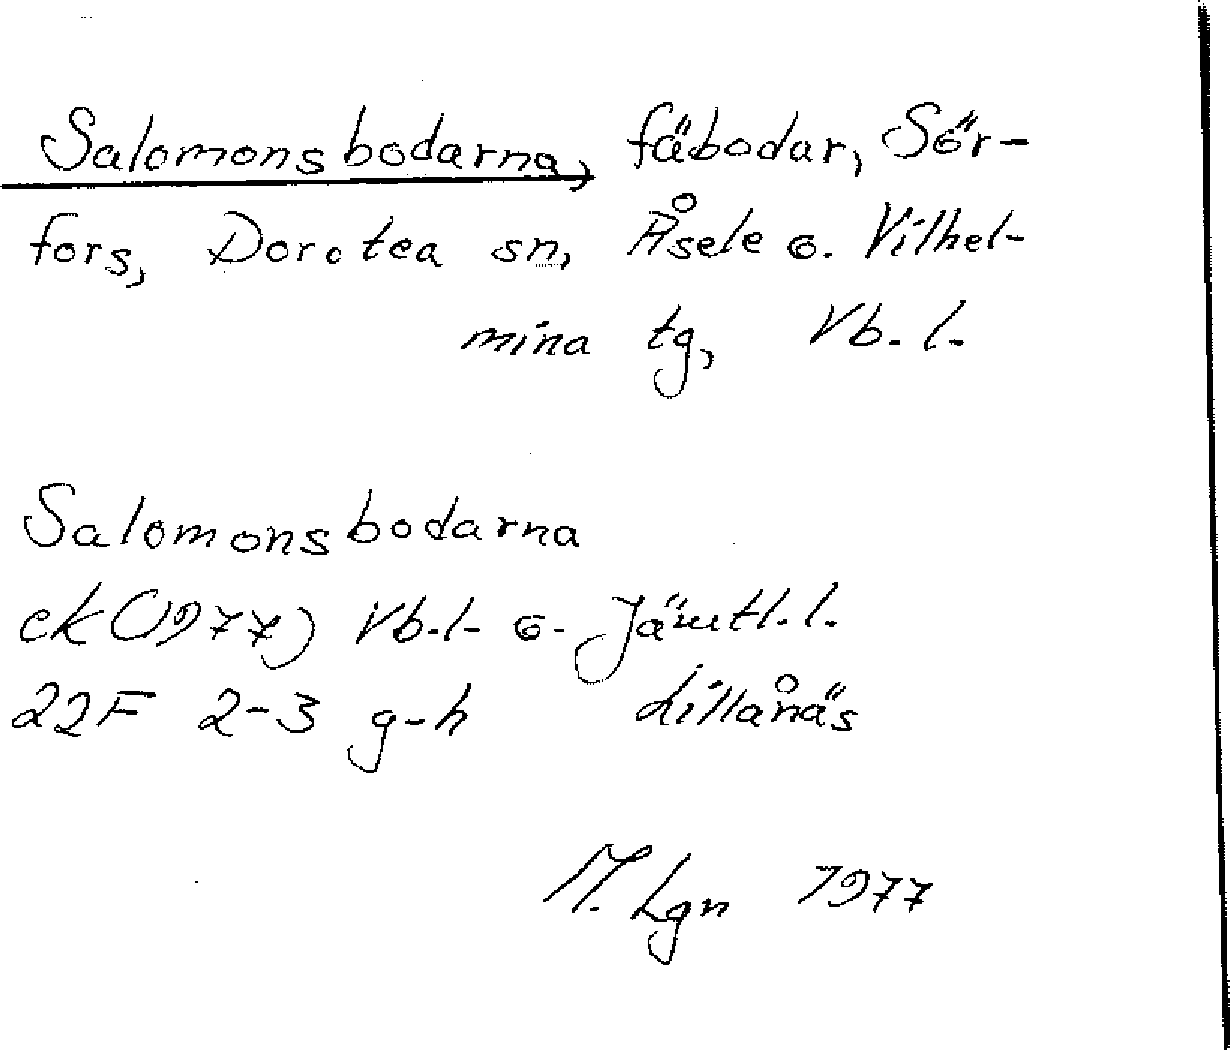 Salomonsbodarna, fäbodar, Sör-
fors, Dorotea sn, Åsele o. Vilhel-
mina tg, Vb. l.
Salomonsbodarna
ek (1977) Vb. l. o. Jämtl. l.
22F 2-3 g-h Lillånäs
M. Lgn 1977